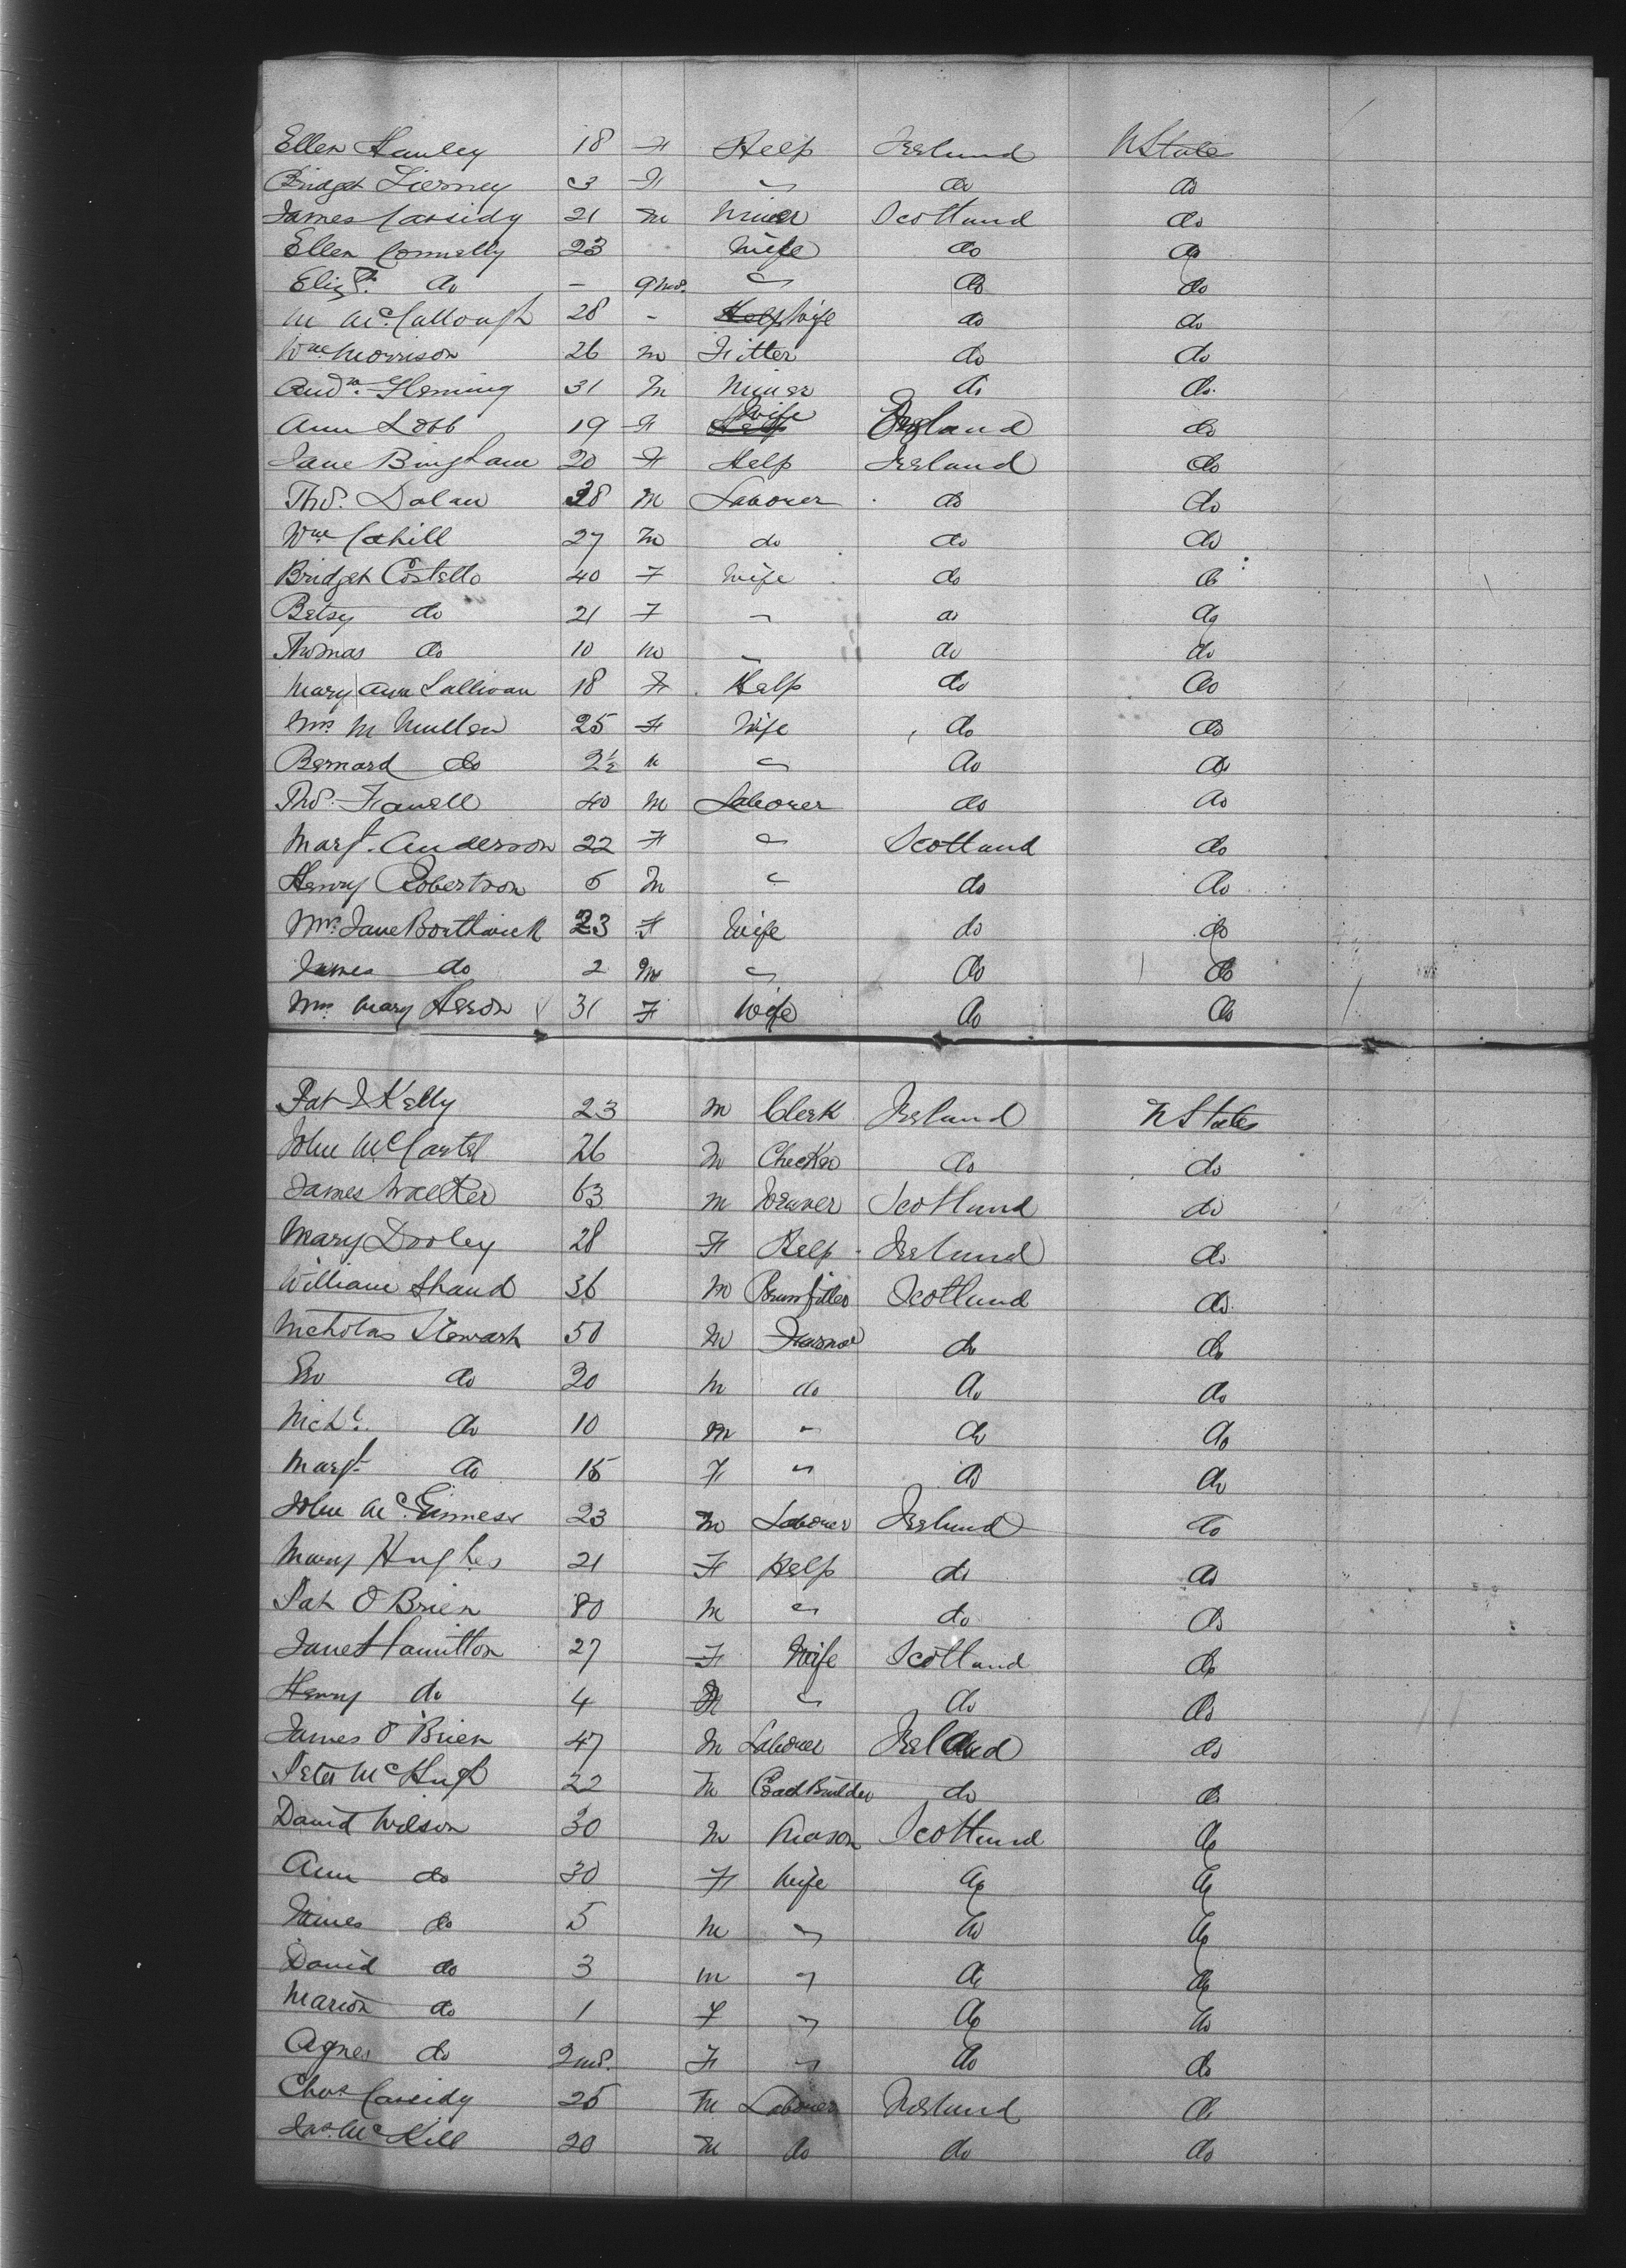 Ellen Hanley 18 F Help Ireland U States
Bridget Tierney 3 F " do do
James Cassidy 21 M Miner Scotland do
Ellen Connelly 23 Wife do do
Eliz.th do - 9 mos. " do do
M McCullough 28 - Help Wife do do
Wm Morrison 26 M Fitter do do
Andw. Fleming 31 M Miner do do.
Ann Lobb 19 F Help Wife England do
Jane Bingham 20 F Help Ireland do
Thos. Dolan 38 M Laborer do do
Wm Cahill 27 M do do do
Bridget Costello 40 F Wife do do
Betsy do 21 F " do do
Thomas do 10 M " do do
Mary Ann Sullivan 18 F Help do do
Mrs. M Mullen 25 F Wife do do
Bernard do 2½ M " do do
Thos. Farrell 40 M Laborer do do
Margt. Anderson 22 F " Scotland do
Henry Robertson 6 M " do do
Mrs. Jane Borthwick 23 F Wife do do
James do 2 M " do do
Mrs. Mary Heron 31 F Wife do do
Pat J Kelly 23 M Clerk Ireland U States
John McCartel 26 M Checker do do
James Walker 63 M Weaver Scotland do
Mary Dooley 28 F Help Ireland do
William Shand 36 M Scotland do
Nicholas Stewart 50 M do do
Geo do 20 M do do do
Nichs. do 10 M " do do
Margt. do 15 F " do do
John McGinness 23 M Laborer Ireland do
Mary Hughes 21 F Help do do
Pat O'Brien 80 M " do do
Jane Hamilton 27 F Wife Scotland do
Henry do 4 M " do do
James O'Brien 47 M Laborer Ireland do
Peter McHugh 22 M Coach Builder do do
David Wilson 30 M Mason Scotland do
Ann do 30 F Wife do do
James do 5 M " do do
David do 3 M " do do
Marion do 1 F " do do
Agnes do 2 mos. F " do do
Chas Cassidy 25 M Laborer Ireland do
Jas. McKill 20 M do do do